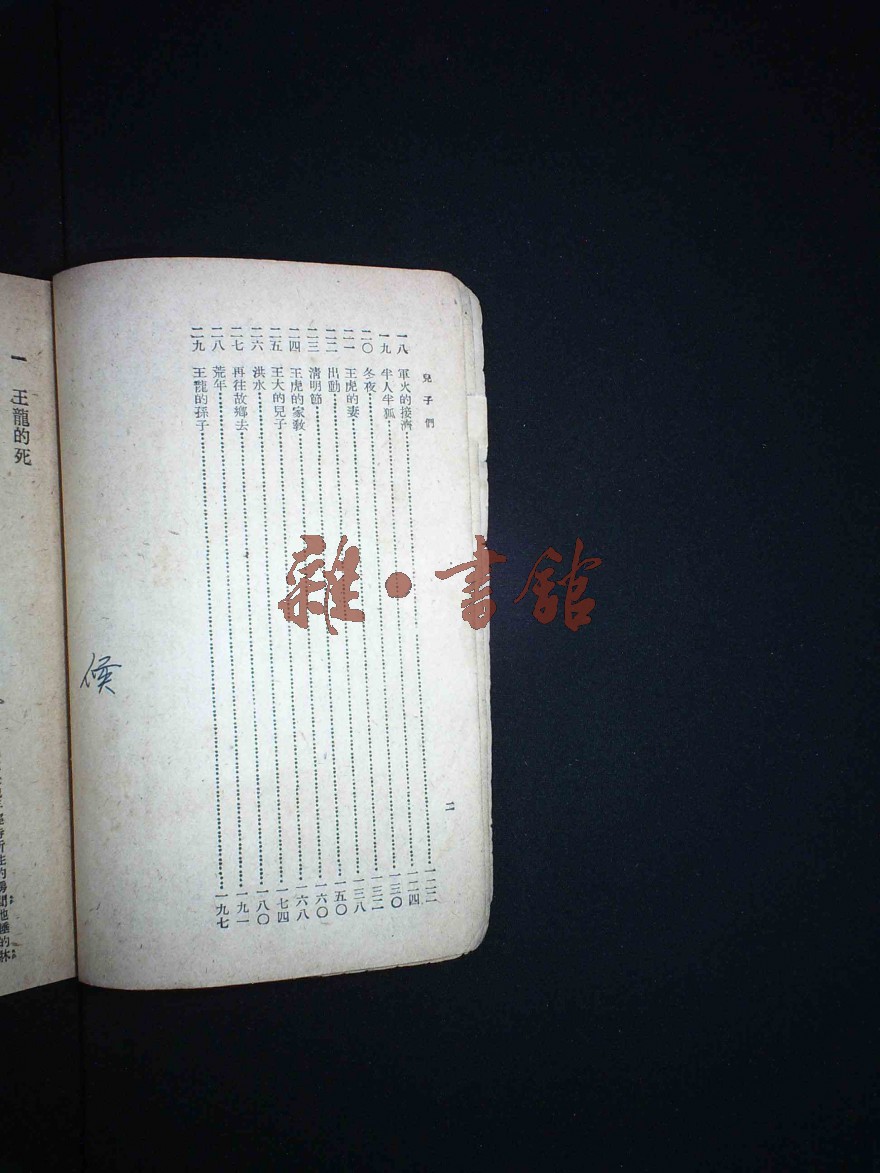 兒子們
二
一八 軍火的接濟 一二二
一九 半人半狐 一二四
二〇 冬夜 一三〇
二一 王虎的妻 一三二
二二 出動 一三八
二三 清明節 一五〇
二四 王虎的家教 一六〇
二五 王大的兒子 一六八
二六 洪水 一七四
二七 再往故鄉去 一八〇
二八 荒年 一九一
二九 王龍的孫子 一九七
侯
雜·書館
一 王龍的死